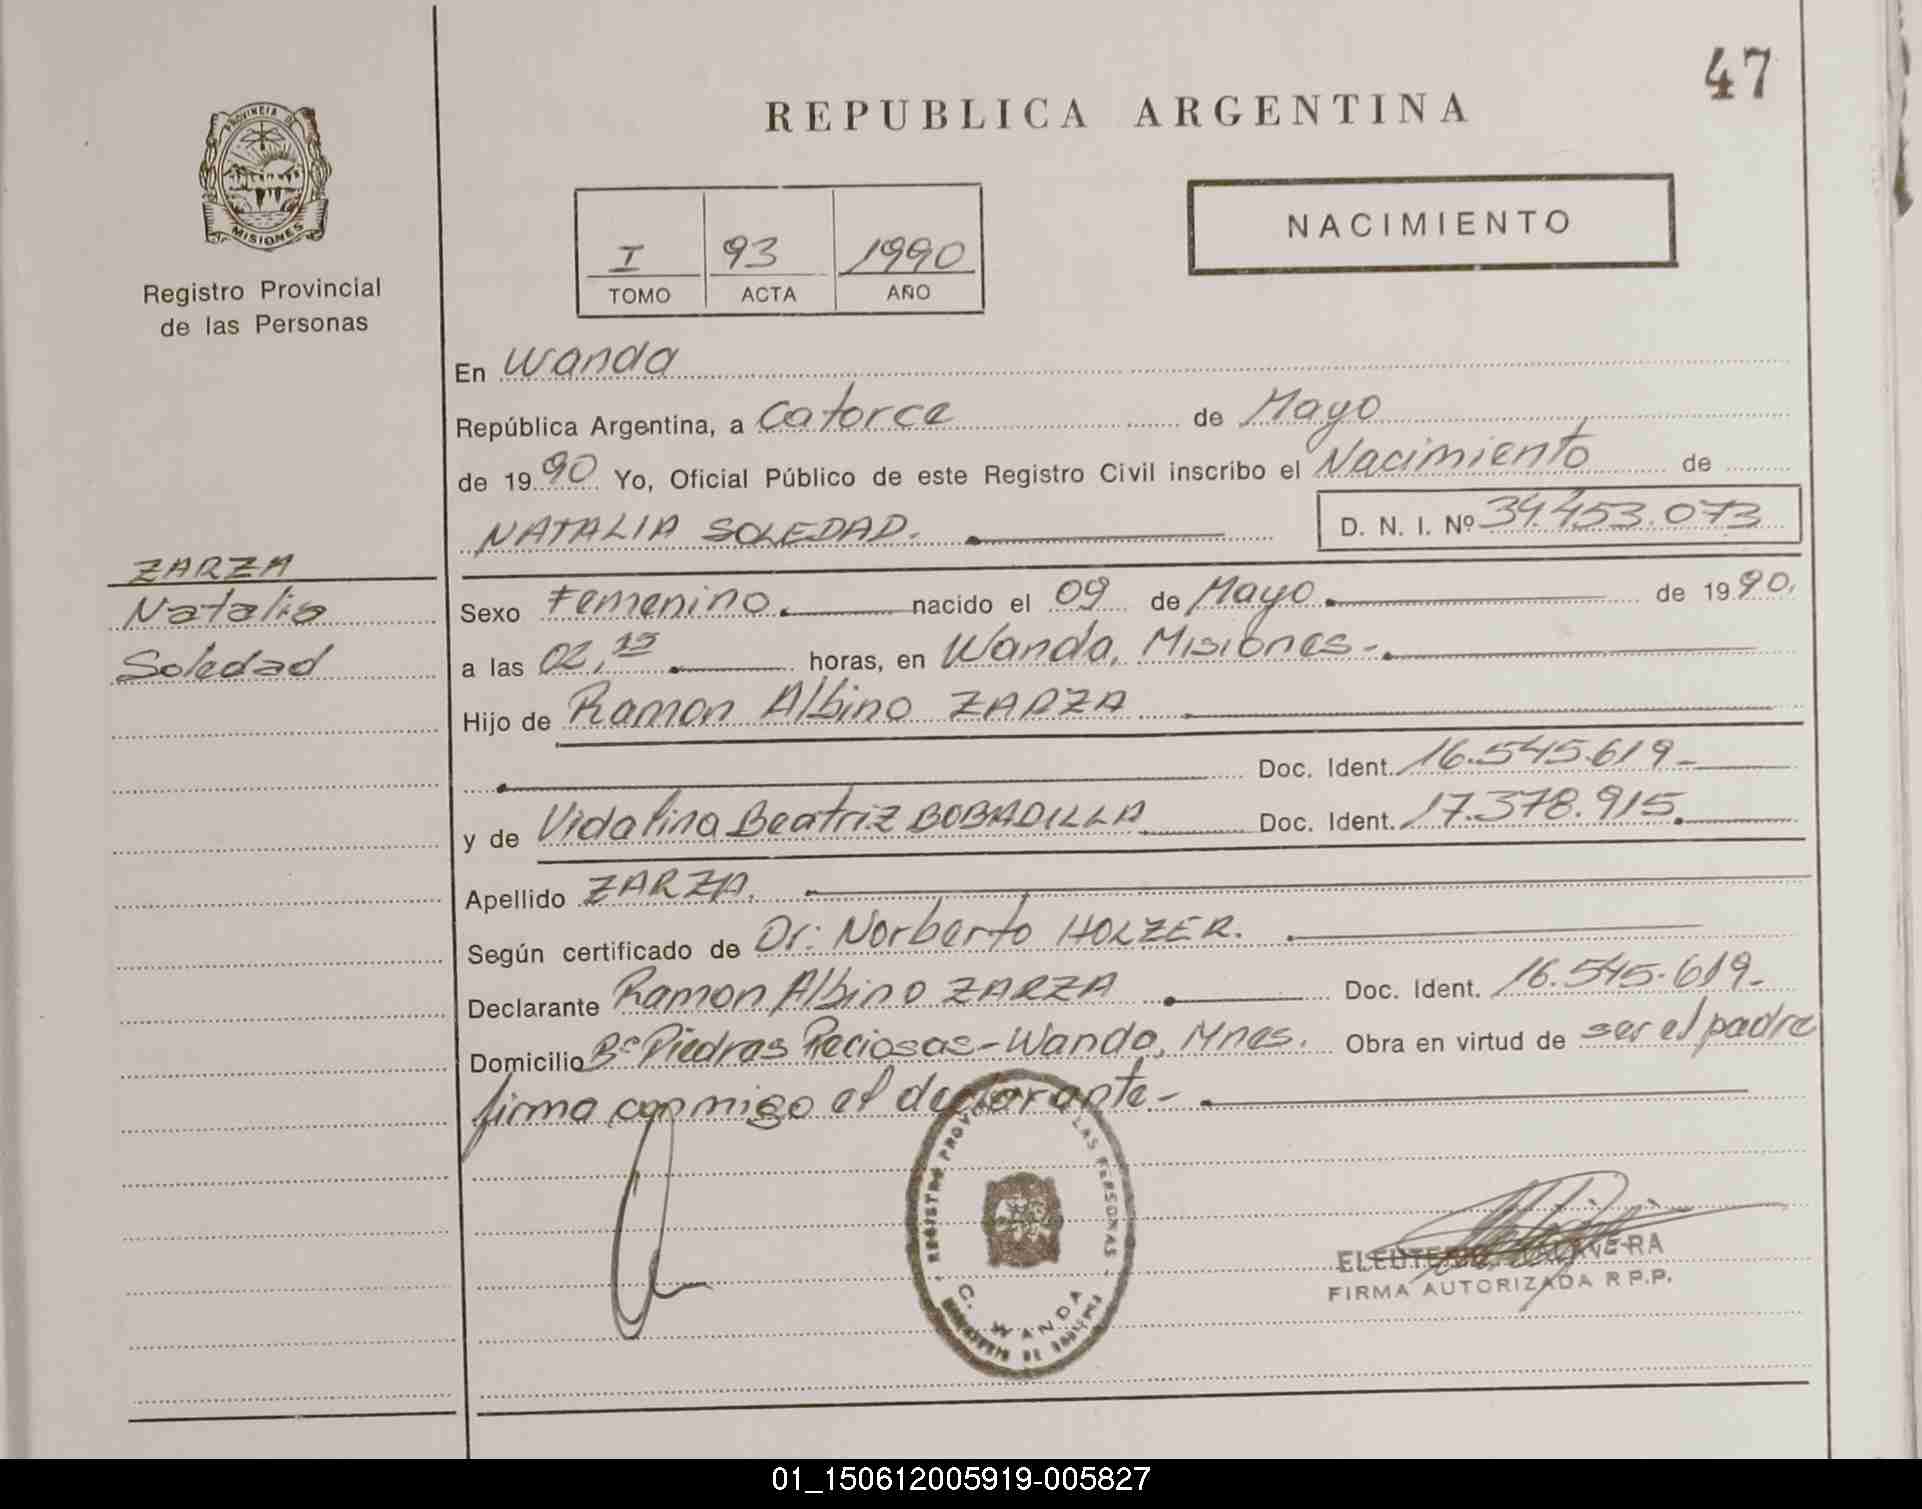 47
REPUBLICA ARGENTINA
PROVINCIA DE
MISIONES
Registro Provincial
de las Personas
NACIMIENTO
I 93 1990
TOMO ACTA AÑO
En Wanda
República Argentina, a catorce de Mayo
de 1990 Yo, Oficial Público de este Registro Civil inscribo el Nacimiento de
NATALIA SOLEDAD. D. N. I. Nº 34.453.073
ZARZA
Natalia
Soledad
Sexo Femenino. nacido el 09 de Mayo. de 1990.
a las 02,15 horas, en Wanda, Misiones.-
Hijo de Ramon Albino ZARZA
Doc. Ident. 16.545.619-
y de Vidalina Beatriz BOBADILLA Doc. Ident. 17.378.915.
Apellido ZARZA.
Según certificado de Dr: Norberto HOLZER.
Declarante Ramon Albino ZARZA Doc. Ident. 16.545.619-
Domicilio Bº Piedras Preciosas-Wanda, Mnes. Obra en virtud de ser el padre
firma conmigo el declarante-
REGISTRO PROV. LAS PERSONAS
C. WANDA
ELEUTERIO
FIRMA AUTORIZADA R.P.P.
01_150612005919-005827